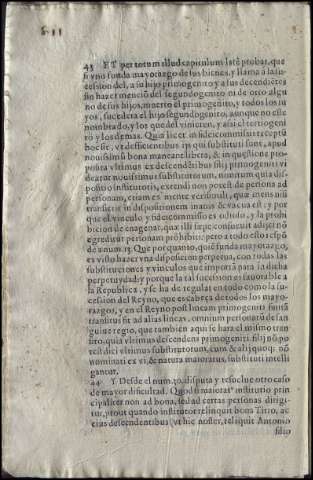 43 ET per totum illud capitulum latè probat, que
si vno funda mayorazgo de sus bienes, y llama à la su-
cession del, a su hijo primogenito y a sus decendiẽtes
sin hazer menciõ del segundogenito ni de otro algu
no de sus hijos, muerto el primogenito, y todos los su
yos, sucedera el hijo segundogenito, aunque no estè
nombrado, y los que del vinieren, y assi el tertiogeni
tò y los demas. Quia licet in fideicommisis receptũ
hoc sit, vt deficientibus ijs qui substituti sunt, apud
nouissimũ bona maneant libera, & in quæstione pro
posita vltimus ex descendẽtibus filij primogeniti vi
deatur nouissimus substitutorum, nimirum quia dis-
positio institutoris, extendi non potest de persona ad
personam, etiam ex mente versimili, quæ in
transierit in dispositionem inanis & vacua est: y por
que el vinculo y fideicommisso es odioso, y la prohi
bicion de enagenar, quæ illi inest consueuit adijci nõ
egreditur personam prohibitã: pero a todo esso respõ
de à num. 13. Que por quanto, quiẽ funda mayorazgo,
es visto hazer vna disposicion perpetua, con todas las
substituciones y vinculos que importã para la dicha
perpetuydad: y porque la tal sucession es fauorable a
la Republica, y se ha de regular en todo como la su-
cession del Reyno, que es cabeça de todos los mayo-
razgos, y en el Reyno post lineam primogeniti finitã
transitus fit ad alias lineas, omnium personarũ de san
guine regio, que tambien aqui se hara el mismo tran-
sito, quia vltimus descendens primogeniti filij nõ po
test dici vltimus substitutorum, cum & alij quoq; nõ
nominati ex vi, & natura maioratus, substituti intelli
gantur.
44 Y Desde el num. 20. disputa y resuelue otro caso
de mayor dificultad. Quod si maioratꝰ institutio prin
cipaliter non ad bona, sed ad certas personas dirigi-
tur, prout quando institutor relinquit bona Titio, ac
eius descendentibus (vt hic noster, reliquit Antonio
filio